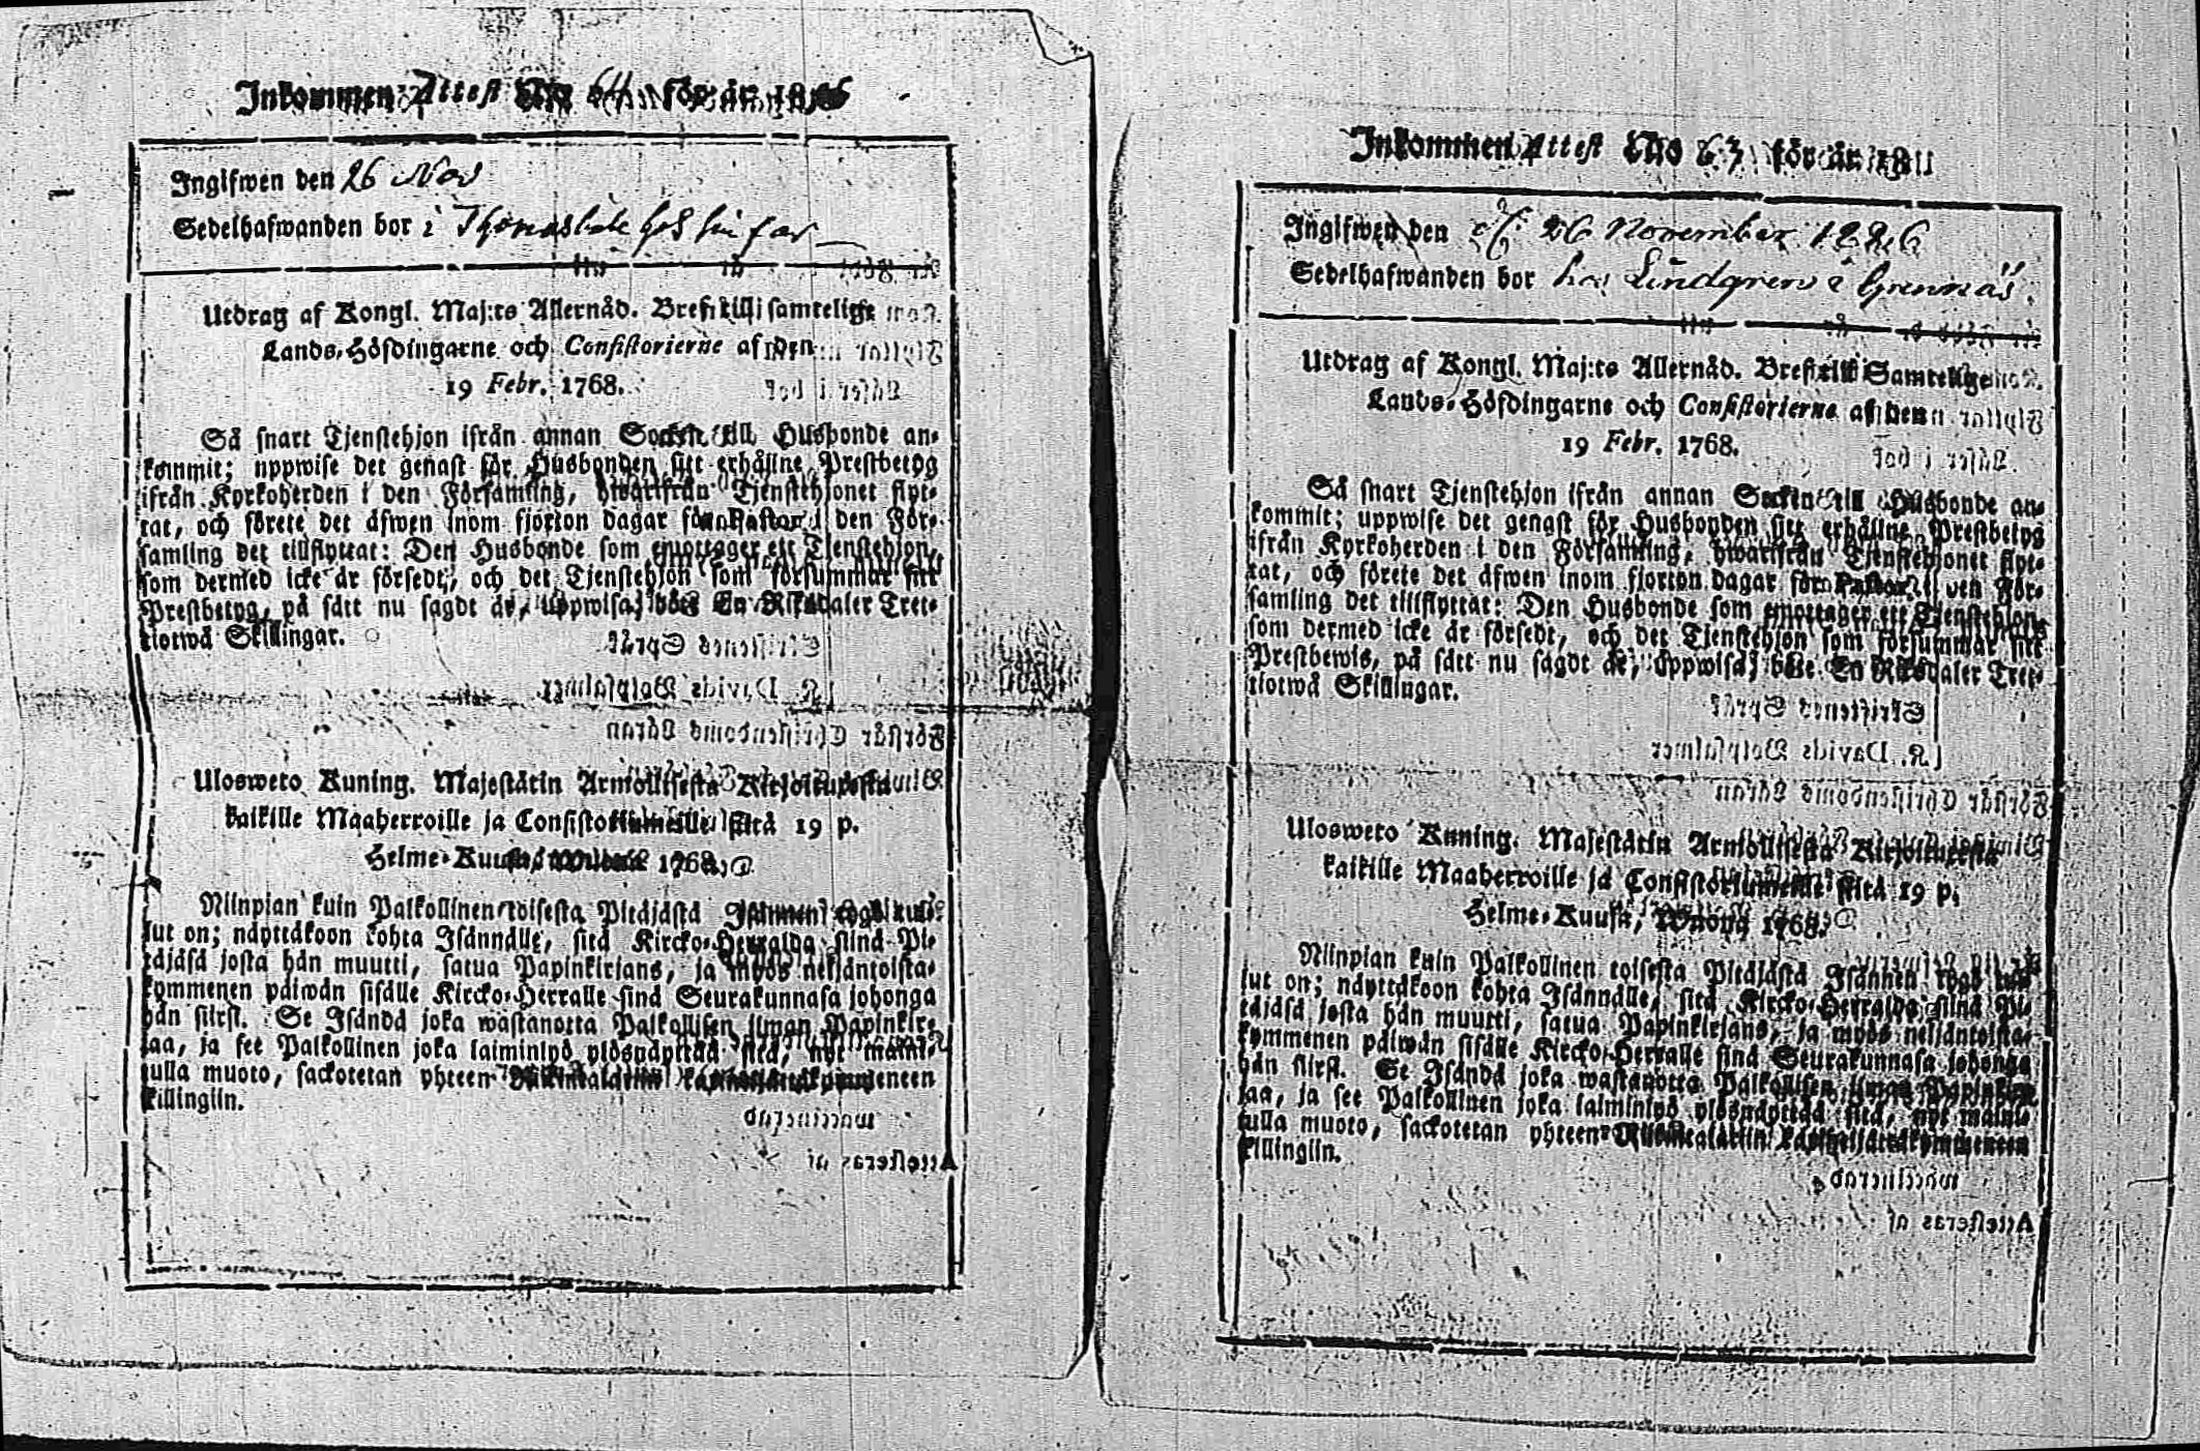 Inkommen Attest No 64 för år 18
Ingifwen den 26 Nov
Sedelhafwanden bor i hos sin far
Utdrag af Kongl. Maj:ts Allernåd. Bref till samtelige
Lands-Höfdingarne och Consistorierne af den
19 Febr. 1768.
Så snart Tjenstehjon ifrån annan Socken till Husbonde an-
kommit; uppwise det genast för Husbonden sitt erhållne Prestbetyg
ifrån Kyrkoherden i den Församling, hwarifrån Tjenstehjonet flyt-
tat, och förete det äfwen inom fjorton dagar för Pastor i den För-
samling det tillflyttat: Den Husbonde som emottager ett Tjenstehjon,
som dermed icke är försedt, och det Tjenstehjon som försummar sitt
Prestbetyg, på sätt nu sagdt är, uppwisa, böte En Riksdaler Tret-
tiotwå Skillingar.
Ulosweto Kuning. Majestätin Armollisesta Kirjoituxesta
kaikille Maaherroille ja Consistoriumeille sitä 19 p.
Helme-Kuusa, Wuonna 1768.
Niinpian kuin Palkollinen toisesta Pitäjästä Isännen tygö tul-
lut on; näyttäkoon kohta Isännälle, sitä Kircko-Herralda siinä Pi-
täjäsä josta hän muutti, saatua Papinkirjans, ja myös neljäntoista-
kymmenen päiwän sisälle Kircko-Herralle siinä Seurakunnasa johonga
hän siirsi. Se Isändä joka wastanotta Palkollisen ilman Papinkir-
jaa, ja see Palkollinen joka laiminlyö ylösnäyttää sitä, nyt maini-
tulla muoto, sackotetan yhteen Riikintalariin kaxineljättäkymmeneen
killingiin.
Inkommen Attest No 63 för år 18
Ingifwen den 26 November 1826
Sedelhafwanden bor hos Lindgren i Grennäs
Utdrag af Kongl. Maj:ts Allernåd. Bref till Samtelige
Lands-Höfdingarne och Consistorierne af den
19 Febr. 1768.
Så snart Tjenstehjon ifrån annan Socken till Husbonde an-
kommit; uppwise det genast för Husbonden sitt erhållne Prestbetyg
ifrån Kyrkoherden i den Församling, hwarifrån Tjenstehjonet flyt-
tat, och förete det äfwen inom fjorton dagar för Pastor i den För-
samling det tillflyttat: Den Husbonde som emottager ett Tjenstehjon,
som dermed icke är försedt, och det Tjenstehjon som försummar sitt
Prestbewis, på sätt nu sagdt är, uppwisa, böte En Riksdaler Tret-
tiotwå Skillingar.
Ulosweto Kuning. Majestätin Armollisesta Kirjoituxesta
kaikille Maaherroille ja Consistoriumeille sitä 19 p.
Helme-Kuusa, Wuonna 1768.
Niinpian kuin Palkollinen toisesta Pitäjästä Isännen tygö tul-
lut on; näyttäkoon kohta Isännälle, sitä Kircko-Herralda siinä Pi-
täjäsä josta hän muutti, saatua Papinkirjans, ja myös neljäntoista-
kymmenen päiwän sisälle Kircko-Herralle siinä Seurakunnasa johonga
hän siirsi. Se Isändä joka wastanotta Palkollisen ilman Papinkir-
jaa, ja see Palkollinen joka laiminlyö ylösnäyttää sitä, nyt maini-
tulla muoto, sackotetan yhteen Riikintalariin kaxineljättäkymmeneen
killingiin.